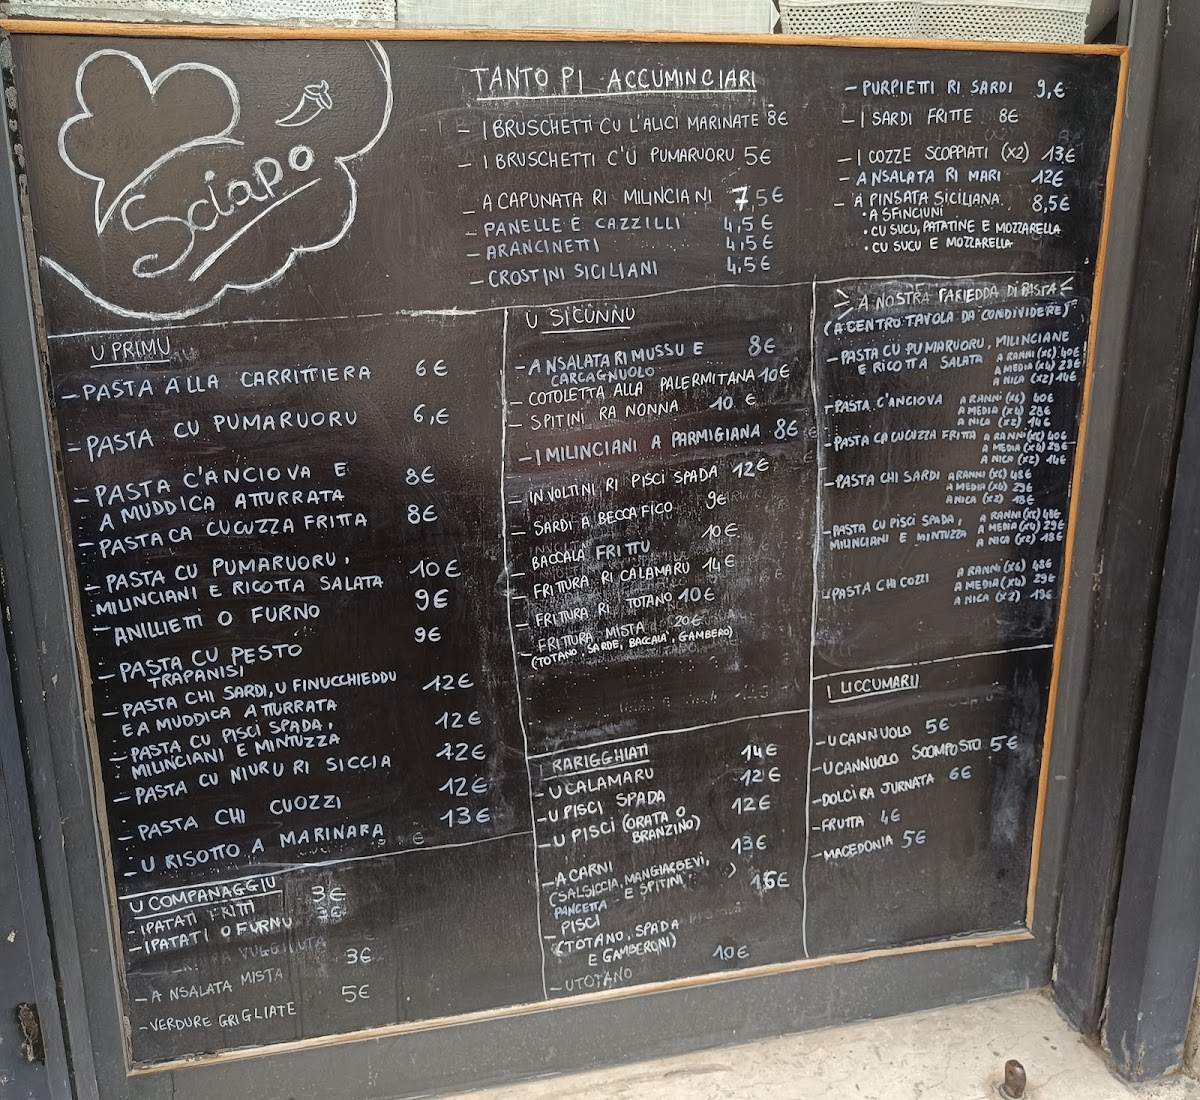 Sciapo
TANTO PI ACCUMINCIARI
- I BRUSCHETTI CU L'ALICI MARINATE 8€
- I BRUSCHETTI C'U PUMARUORU 5€
- A CAPUNATA RI MILINCIANI 7,5€
- PANELLE E CAZZILLI 4,5€
- ARANCINETTI 4,5€
- CROSTINI SICILIANI 4,5€
- PURPIETTI RI SARDI 9,€
- I SARDI FRITTE 8€
- I COZZE SCOPPIATI (X2) 13€
- A NSALATA RI MARI 12€
- A PINSATA SICILIANA 8,5€
• A SFINCIUNI
• CU SUCU, PATATINE E MOZZARELLA
• CU SUCU E MOZZARELLA
U PRIMU
- PASTA ALLA CARRITTIERA 6€
- PASTA CU PUMARUORU 6,€
- PASTA C'ANCIOVA E 8€
A MUDDICA ATTURRATA
- PASTA CA CUCUZZA FRITTA 8€
- PASTA CU PUMARUORU, 10€
MILINCIANI E RICOTTA SALATA
- ANILLIETTI O FURNO 9€
- PASTA CU PESTO 9€
TRAPANISI
- PASTA CHI SARDI, U FINUCCHIEDDU 12€
E A MUDDICA ATTURRATA
- PASTA CU PISCI SPADA, 12€
MILINCIANI E MINTUZZA
- PASTA CU NIURU RI SICCIA 12€
- PASTA CHI CUOZZI 12€
- U RISOTTO A MARINARA 13€
U COMPANAGGIU
- I PATATI FRITTI 3€
- I PATATI O FURNU 3€
- A NSALATA MISTA 3€
- VERDURE GRIGLIATE 5€
U SICUNNU
- A NSALATA RI MUSSU E 8€
CARCAGNUOLO
- COTOLETTA ALLA PALERMITANA 10€
- SPITINI RA NONNA 10€
- I MILINCIANI A PARMIGIANA 8€
- INVOLTINI RI PISCI SPADA 12€
- SARDI A BECCAFICO 9€
- BACCALA FRITTU 10€
- FRITTURA RI CALAMARU 14€
- FRITTURA RI TOTANO 10€
- FRITTURA MISTA 20€
(TOTANO, SARDE, BACCALA, GAMBERO)
I RARIGGHIATI
- U CALAMARU 14€
- U PISCI SPADA 12€
- U PISCI (ORATA O 12€
BRANZINO)
- A CARNI 13€
(SALSICCIA, MANGIAEBEVI,
PANCETTA E SPITINI)
- PISCI 15€
(TOTANO, SPADA
E GAMBERONI)
- U TOTANO 10€
A NOSTRA PARIEDDA DI PASTA
(A CENTRO TAVOLA DA CONDIVIDERE)
- PASTA CU PUMARUORU, MILINCIANE
E RICOTTA SALATA A RANNI (X6) 40€
A MEDIA (X4) 29€
A NICA (X2) 14€
- PASTA C'ANCIOVA A RANNI (X6) 40€
A MEDIA (X4) 28€
A NICA (X2) 14€
- PASTA CA CUCUZZA FRITTA A RANNI (X6) 40€
A MEDIA (X4) 29€
A NICA (X2) 14€
- PASTA CHI SARDI A RANNI (X6) 48€
A MEDIA (X4) 29€
A NICA (X2) 18€
- PASTA CU PISCI SPADA, A RANNI (X6) 48€
MILINCIANI E MINTUZZA A MEDIA (X4) 29€
A NICA (X2) 18€
- PASTA CHI COZZI A RANNI (X6) 48€
A MEDIA (X4) 29€
A NICA (X2) 19€
I LICCUMARII
- U CANNUOLO 5€
- U CANNUOLO SCOMPOSTO 5€
- DOLCI RA JURNATA 6€
- FRUTTA 4€
- MACEDONIA 5€